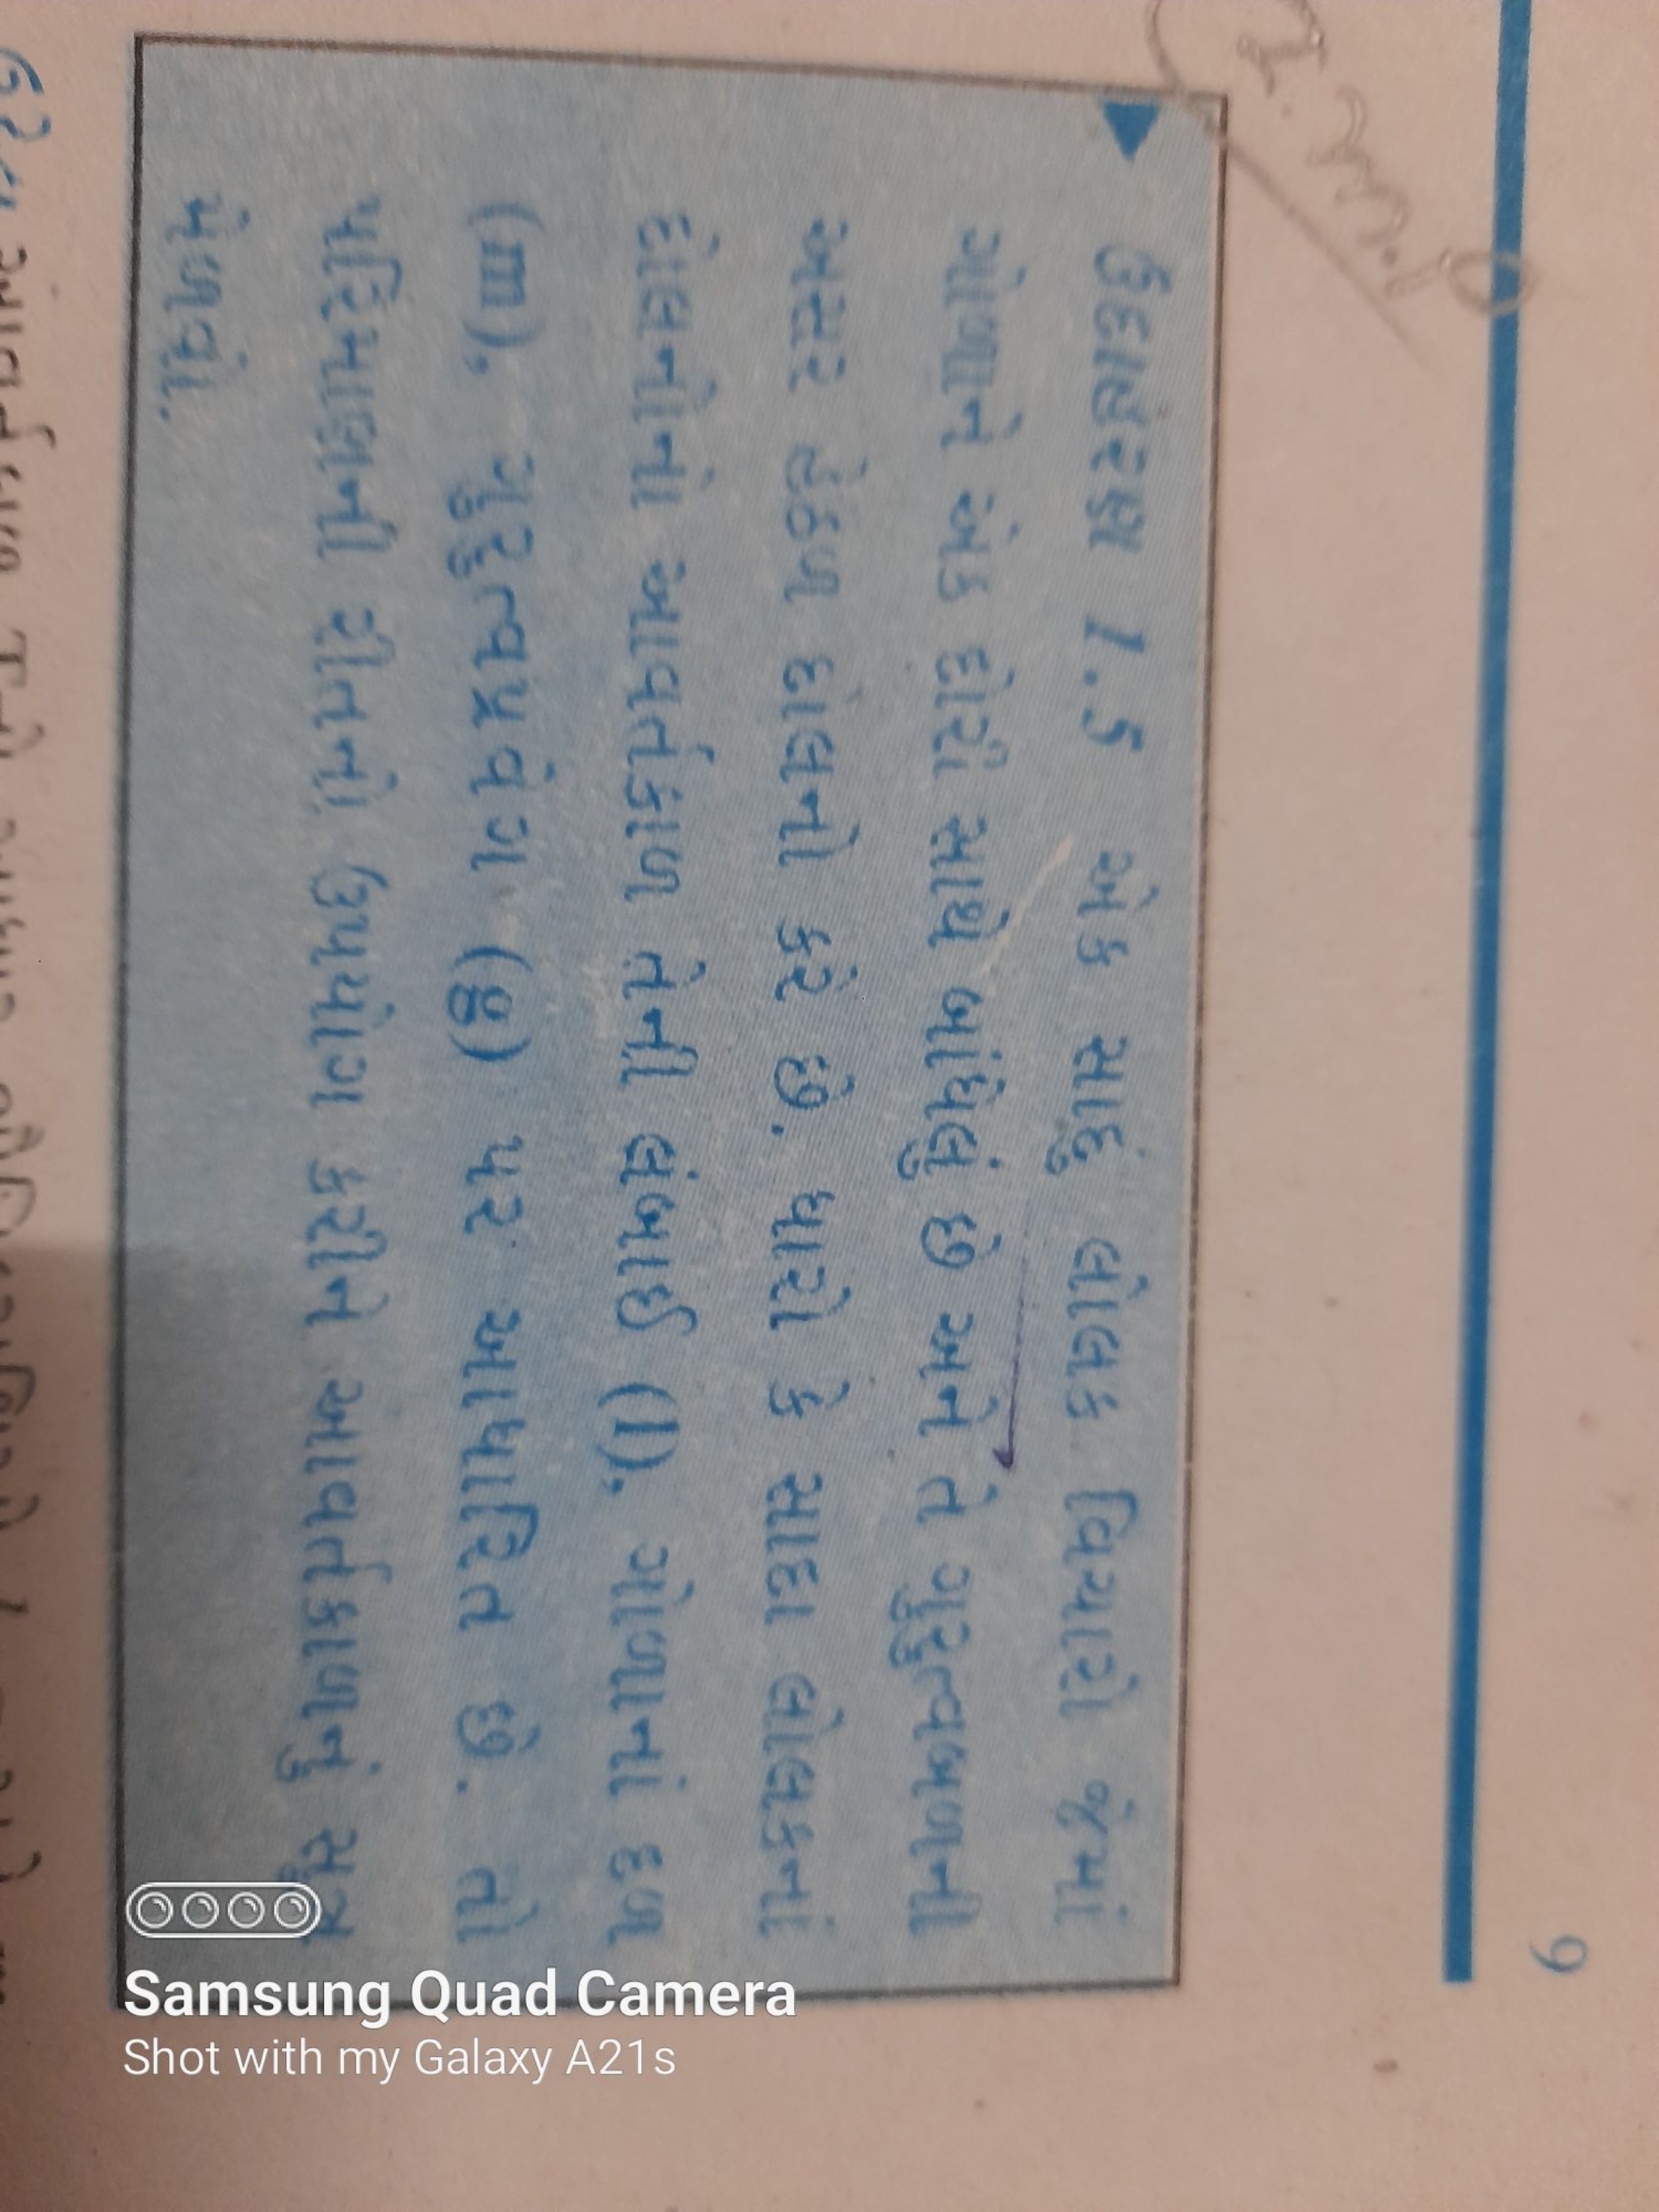 9
ઉદાહરણ 1.5 એક સાદું લોલક વિચારો જેમાં
ગોળાને એક દોરી સાથે બાંધેલું છે અને તે ગુરુત્વબળની
અસર હેઠળ દોલનો કરે છે. ધારો કે સાદા લોલકનાં
દોલનોનો આવર્તકાળ તેની લંબાઈ (l), ગોળાનાં દળ
(m), ગુરુત્વપ્રવેગ (g) પર આધારિત છે. તો
પરિમાણની રીતનો ઉપયોગ કરીને આવર્તકાળનું સૂત્ર
મેળવો.
Samsung Quad Camera
Shot with my Galaxy A21s